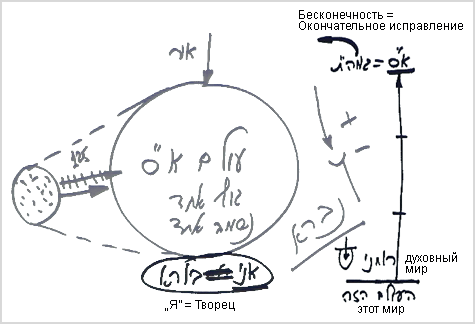 Бесконечность =
Окончательное исправление
א"ס = גמה"ת
אור
125
עולם א"ס
גוף אחד
נשמה אחת
+
-
אני = בורא
„Я" = Творец
רוחני
духовный
мир
העולם הזה
этот мир